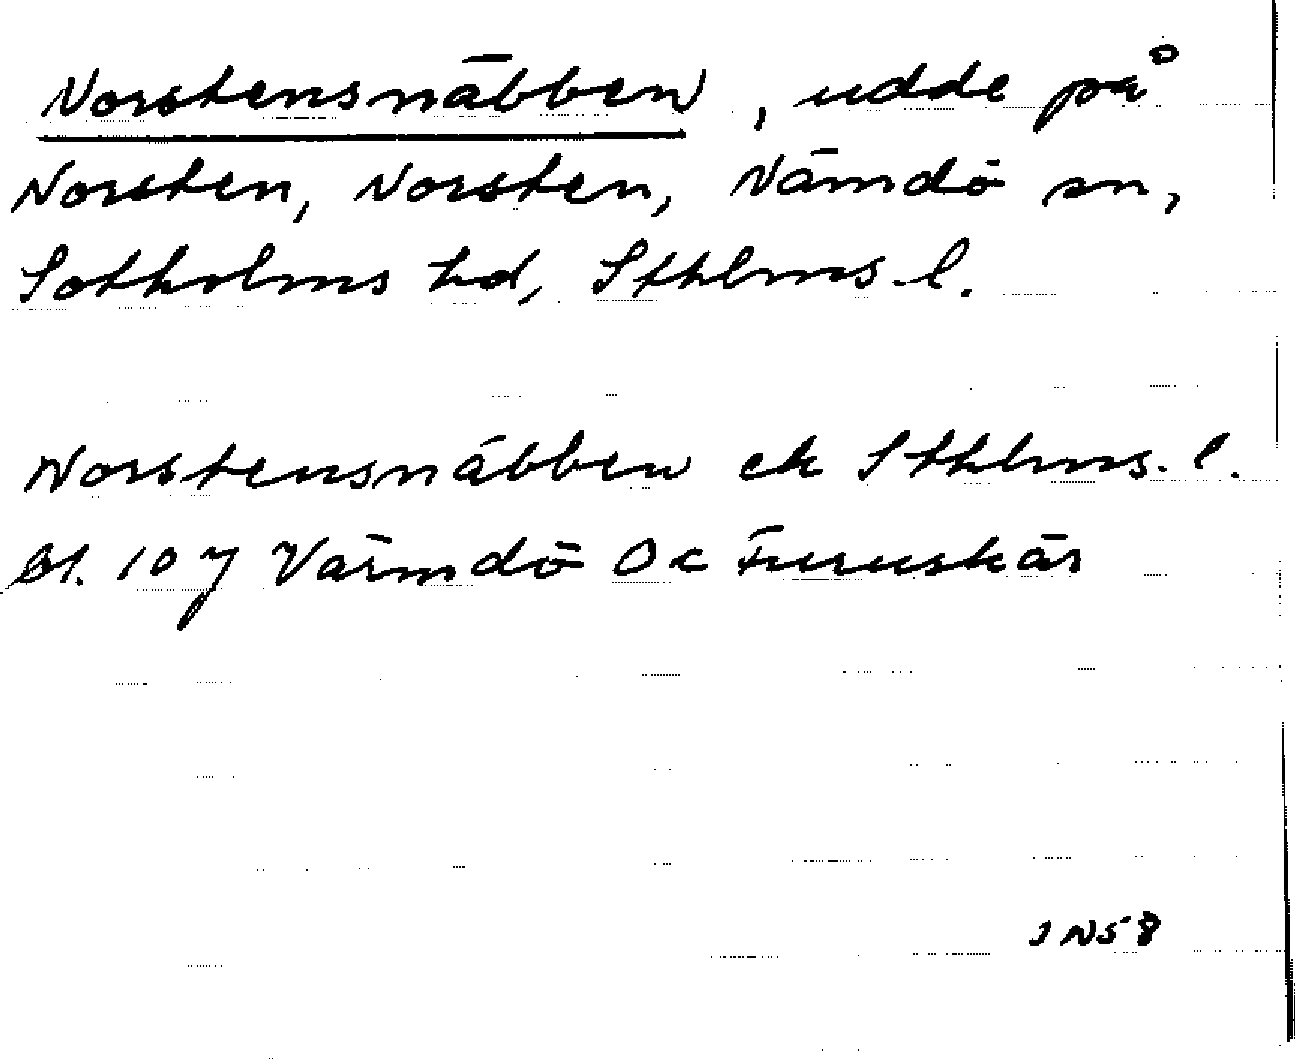 Norstensnäbben, udde på
Norsten, Norsten, Nämdö sn,
Sotholms hd, Sthlms l.
Norstensnäbben ek Sthlms. l.
Bl. 107 Värmdö Oc Furuskär
JNS8